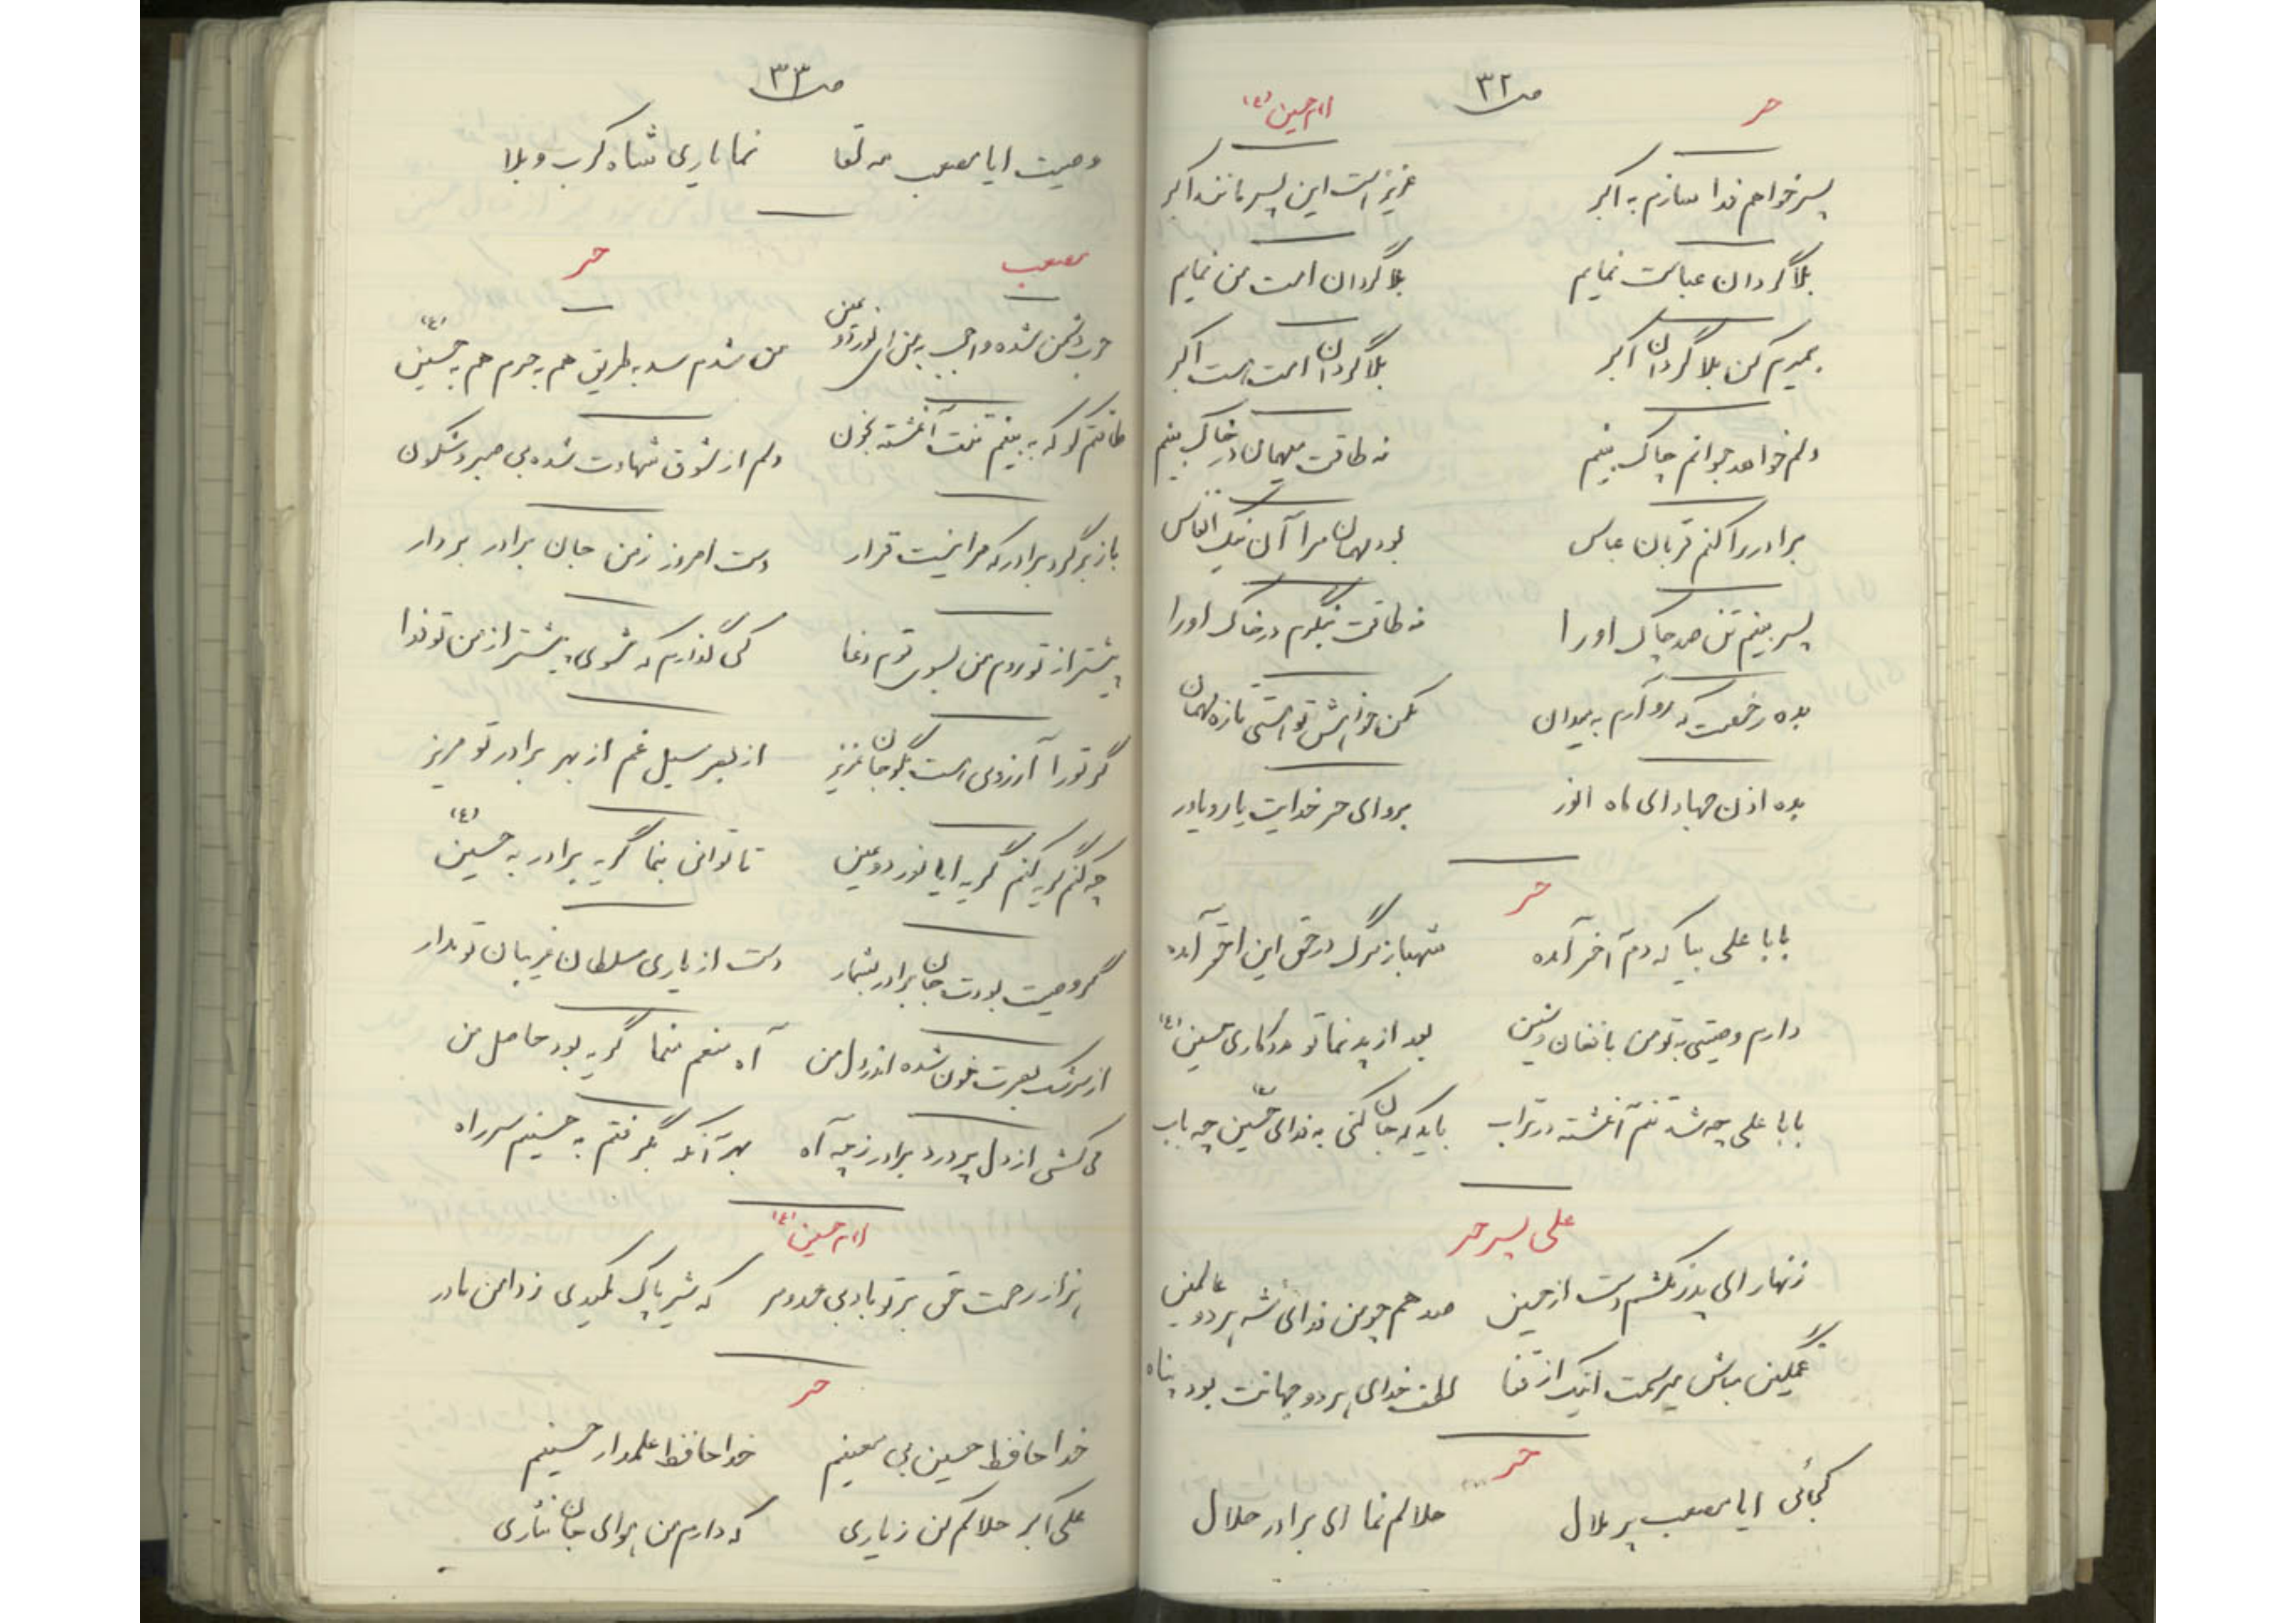 ص ۳۲
حر امام حسین (ع)
پسر خواهم فدا سازم به اکبر عزیز است این پسر مانند اکبر
بلا گردان عباست نمایم بلا گردان امت من نمایم
بمیرم من بلا گردان اکبر بلا گردان امت است اکبر
دلم خواهد جوانم چاک بینم نه طاقت میهمان در خاک بینم
برادر را کنم قربان عباس بود مهمان مرا آن نیک انفاس
پسر بینم تن صد چاک او را نه طاقت بنگرم در خاک او را
بده رخصت که رو آرم به میدان مکن خواهش تو استی تازه مهمان
بده اذن جهاد ای ماه انور برو ای حر خدایت یار و یاور
حر
بابا علی بیا که دم آخر آمده شهباز مرگ در حق این احقر آمده
دارم وصیتی به تو من با فغان و شین بعد از پدر نما تو مددکاری حسین (ع)
بابا علی چه شد تنم آغشته در تراب باید که جان کنی به فدای حسین (ع) چه باب
علی پسر حر
زنهار ای پدر نکشم دست از حسین صد هم چو من فدائی شه هر دو عالمین
غمگین مباش میرسمت اینک از قفا لطف خدای هر دو جهانت بود پناه
حر
کجائی ایا مصعب پر ملال حلالم نما ای برادر حلال
ص ۳۳
وصیت ایا مصعب مه لقا نما یاری شاه کرب و بلا
مصعب حر
حرب دشمن شده واجب به من ای نور دو عین من شدم سد به طریق هم به حرم هم به حسین (ع)
طاقتم کو که به بینم تنت آغشته بخون دلم از شوق شهادت شده بی صبر و سکون
باز برگرد برادر که مرا نیست قرار دست امروز ز من جان برادر بردار
پیشتر از تو روم من بسوی قوم دغا کی گذارم که شوی پیشتر از من تو فدا
گر تو را آرزوی است بگو جان عزیز از بصر سیل غم از بهر برادر تو مریز
چه کنم گریه کنم گریه ایا نور دو عین تا توانی بنما گریه برادر به حسین (ع)
گر وصیت بودت جان برادر بشمار دست از یاری سلطان غریبان تو مدار
از سرشک بصرت خون شده اندر دل من آه منعم منما گریه بود حاصل من
می کشی از دل پر درد برادر ز چه آه بهر آنکه بگرفتم به حسینم سر راه
امام حسین (ع)
هزار رحمت حق بر تو باد بی حد و مر که شیر پاک مکیدی ز دامن مادر
حر
خدا حافظ حسین بی معینم خدا حافظ علمدار حسینم
علی اکبر حلالم کن ز یاری که دارم من هوای جان نثاری